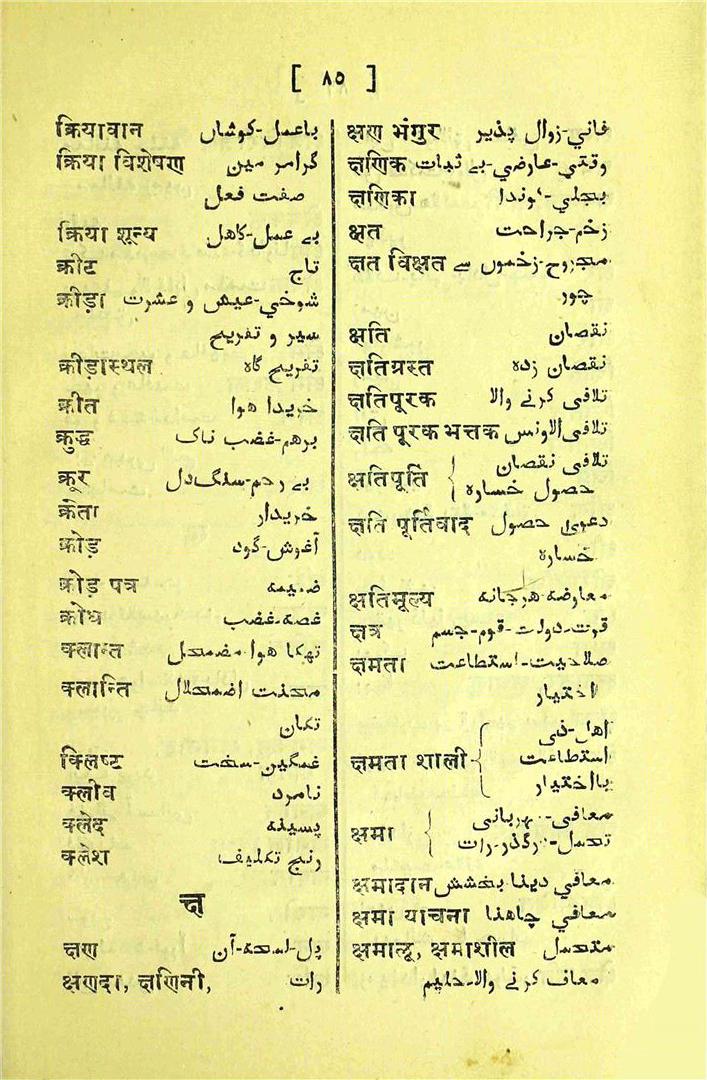 [ ۸۵ ]
क्रियावान باعمل-کوشاں
क्रिया विशेषण گرامر میں
صفت فعل
क्रिया शून्य بے عمل-کاهل
क्रीट تاج
क्रीड़ा شوخي-عیش و عشرت
سیر و تفریح
क्रीड़ास्थल تفریح گاہ
क्रीत خریدا هوا
क्रुद्ध برهم-غضب ناک
क्रूर بے رحم-سنگ دل
क्रेता خریدار
क्रोड़ آغوش-گود
क्रोड़ पत्र ضمیمه
क्रोध غصه-غضب
क्लान्त تهکا هوا مضمحل
क्लान्ति محنت اضمحلال
تکان
क्लिष्ट غمگین-سخت
क्लीव نامرد
क्लेद پسینه
क्लेश رنج تکلیف
क्ष
क्षण پل-لمحه-آن
क्षणदा, क्षणिनी, رات
क्षण भंगुर فاني-زوال پذیر
क्षणिक وقتي-عارضي-بے ثبات
क्षणिका بجلي-کوندا
क्षत زخم-جراحت
क्षत विक्षत مجروح-زخموں سے
چور
क्षति نقصان
क्षतिग्रस्त نقصان زدہ
क्षतिपूरक تلافی کرنے والا
क्षति पूरक भत्तक تلافی الاونس
क्षतिपूर्ति تلافی نقصان
حصول خسارہ
क्षति पूर्तिवाद دعویٰ حصول
خسارہ
क्षतिमूल्य معاوضه هرجانه
क्षत्र قوت-دولت-قوم-جسم
क्षमता صلاحیت-استطاعت
اختیار
क्षमता शाली اهل-فی
استطاعت
بااختیار
क्षमा معافي-مہربانی
تحمل-درگذر-رات
क्षमादान معافي دینا بخشش
क्षमा याचना معافي چاهنا
क्षमालू, क्षमाशील متحمل
معاف کرنے والا-حلیم